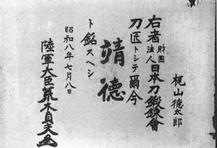 梶山德太郎
右者財團法人日本刀鍛錬會
刀匠トシテ爾今
靖德
ト銘スヘシ
昭和八年七月八日
陸軍大臣荒木貞夫